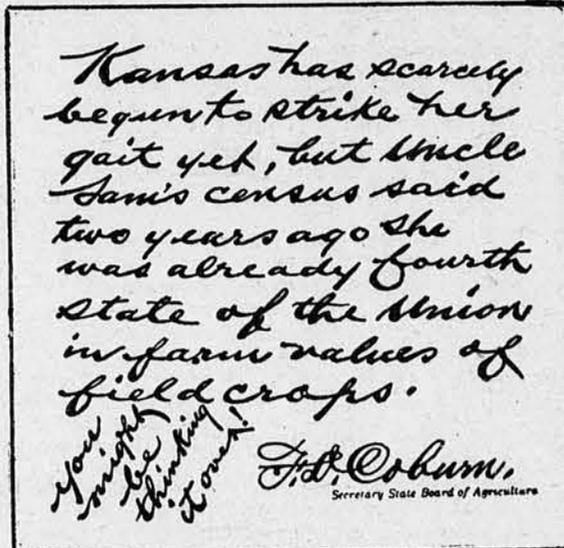 Kansas has scarcely
begun to strike her
gait yet, but Uncle
Sam's census said
two years ago she
was already fourth
state of the Union
in farm values of
field crops.
You
might
be
thinking
it over!
F. D. Coburn.
Secretary State Board of Agriculture